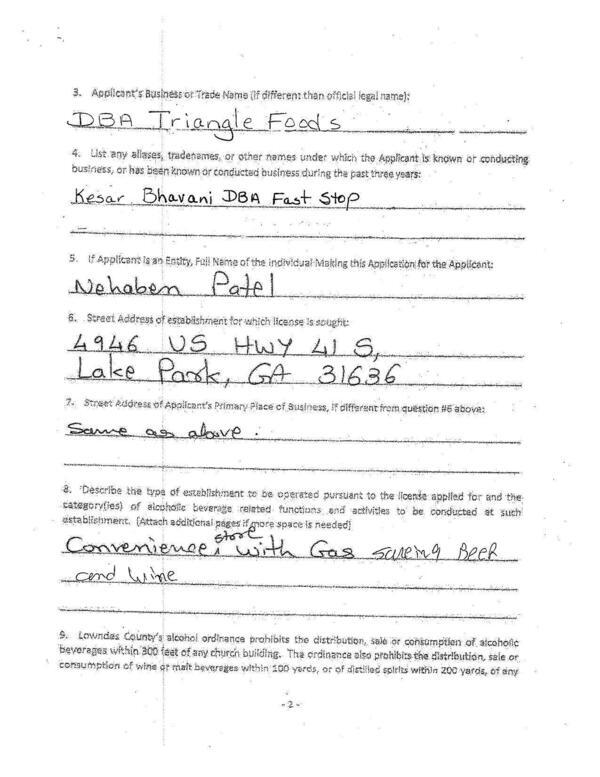 3. Applicant's Business or Trade Name (if different than official legal name):
DBA Triangle Foods
4. List any aliases, tradenames, or other names under which the Applicant is known or conducting
business, or has been known or conducted business during the past three years:
Kesar Bhavani DBA Fast Stop
5. If Applicant is an Entity, Full Name of the Individual Making this Application for the Applicant:
Nehaben Patel
6. Street Address of establishment for which license is sought:
4946 US HWY 41 S,
Lake Park, GA 31636
7. Street Address of Applicant's Primary Place of Business, if different from question #6 above:
Same as above.
8. Describe the type of establishment to be operated pursuant to the license applied for and the
category(ies) of alcoholic beverage related functions and activities to be conducted at such
establishment. (Attach additional pages if more space is needed)
store
Convenience, with Gas Beer
and Wine
9. Lowndes County's alcohol ordinance prohibits the distribution, sale or consumption of alcoholic
beverages within 300 feet of any church building. The ordinance also prohibits the distribution, sale or
consumption of wine or malt beverages within 100 yards, or of distilled spirits within 200 yards, of any
- 2 -